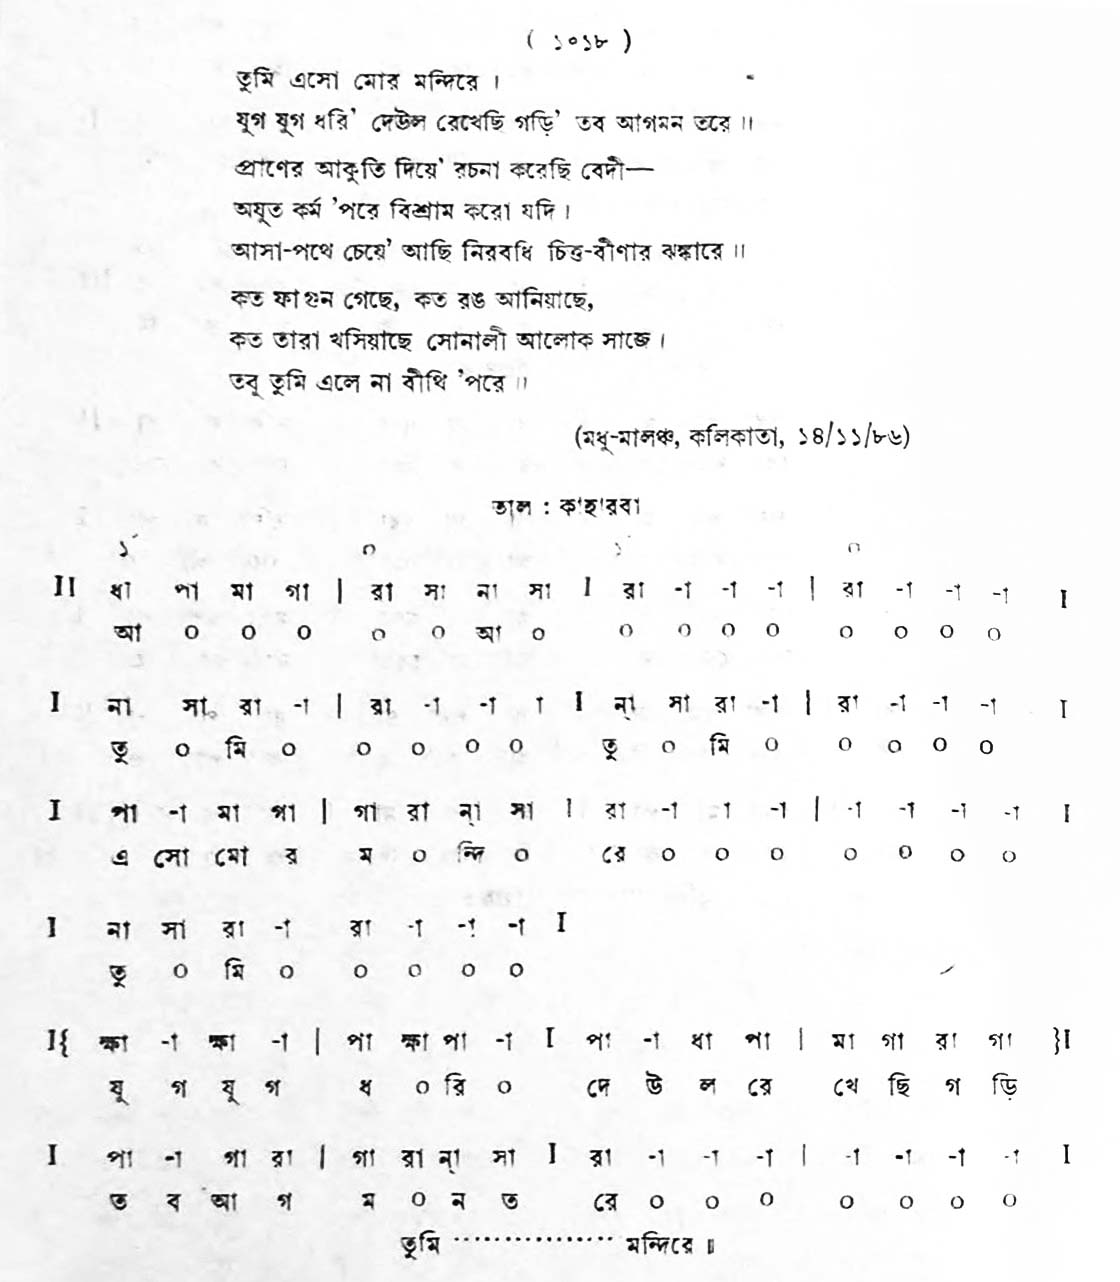 ( ১০১৮ )
তুমি এসো মোর মন্দিরে ।
যুগ যুগ ধরি' দেউল রেখেছি গড়ি' তব আগমন তরে ।।
প্রাণের আকুতি দিয়ে' রচনা করেছি বেদী—
অযুত কর্ম 'পরে বিশ্রাম করো যদি ।
আসা-পথে চেয়ে' আছি নিরবধি চিত্ত-বীণার ঝঙ্কারে ।।
কত ফাগুন গেছে, কত রঙ আনিয়াছে,
কত তারা খসিয়াছে সোনালী আলোক সাজে ।
তবু তুমি এলে না বীথি 'পরে ।।
(মধু-মালঞ্চ, কলিকাতা, ১৪/১১/৮৬)
তাল : কাহারবা
১´ ০ ১´ ০
II ধা পা মা গা | রা সা না সা I রা -া -া -া | রা -া -া -া I
আ ০ ০ ০ ০ ০ আ ০ ০ ০ ০ ০ ০ ০ ০ ০
I না সা রা -া | রা -া -া া I ন্া সা রা -া | রা -া -া -া I
তু ০ মি ০ ০ ০ ০ ০ তু ০ মি ০ ০ ০ ০ ০
I পা -া মা পা | গা রা ন্া সা I রা -া া -া | -া -া -া -া I
এ সো মো র ম ০ ন্দি ০ রে ০ ০ ০ ০ ০ ০ ০
I না সা রা -া রা -া -া -া I
তু ০ মি ০ ০ ০ ০ ০
I{ ক্ষা -া ক্ষা -া | পা ক্ষা পা -া I পা -া ধা পা | মা গা রা গা }I
যু গ যু গ ধ ০ রি ০ দে উ ল রে খে ছি গ ড়ি
I পা -া গা রা | গা রা ন্া সা I রা -া -া -া | -া -া -া -া I
ত ব আ গ ম ০ ন ত রে ০ ০ ০ ০ ০ ০ ০
তুমি ················ মন্দিরে ॥